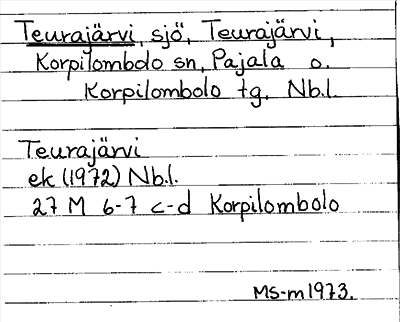 Teurajärvi, sjö, Teurajärvi,
Korpilombolo sn, Pajala o.
Korpilombolo tg, Nb.l.
Teurajärvi
ek (1972) Nb.l.
27 M 6-7 c-d Korpilombolo
MS-m1973.